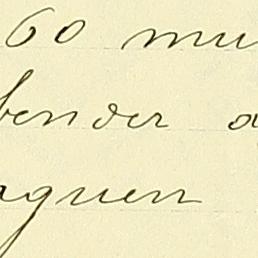 60 mu
bender a
aguen